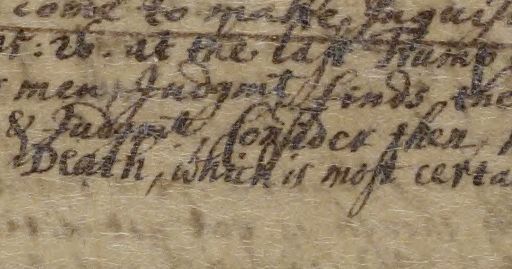 come to make Inquisi
25: 26. at the last Trump
men, Judgmt finds, the
& Judgmt. Consider then,
Death, which is most certa